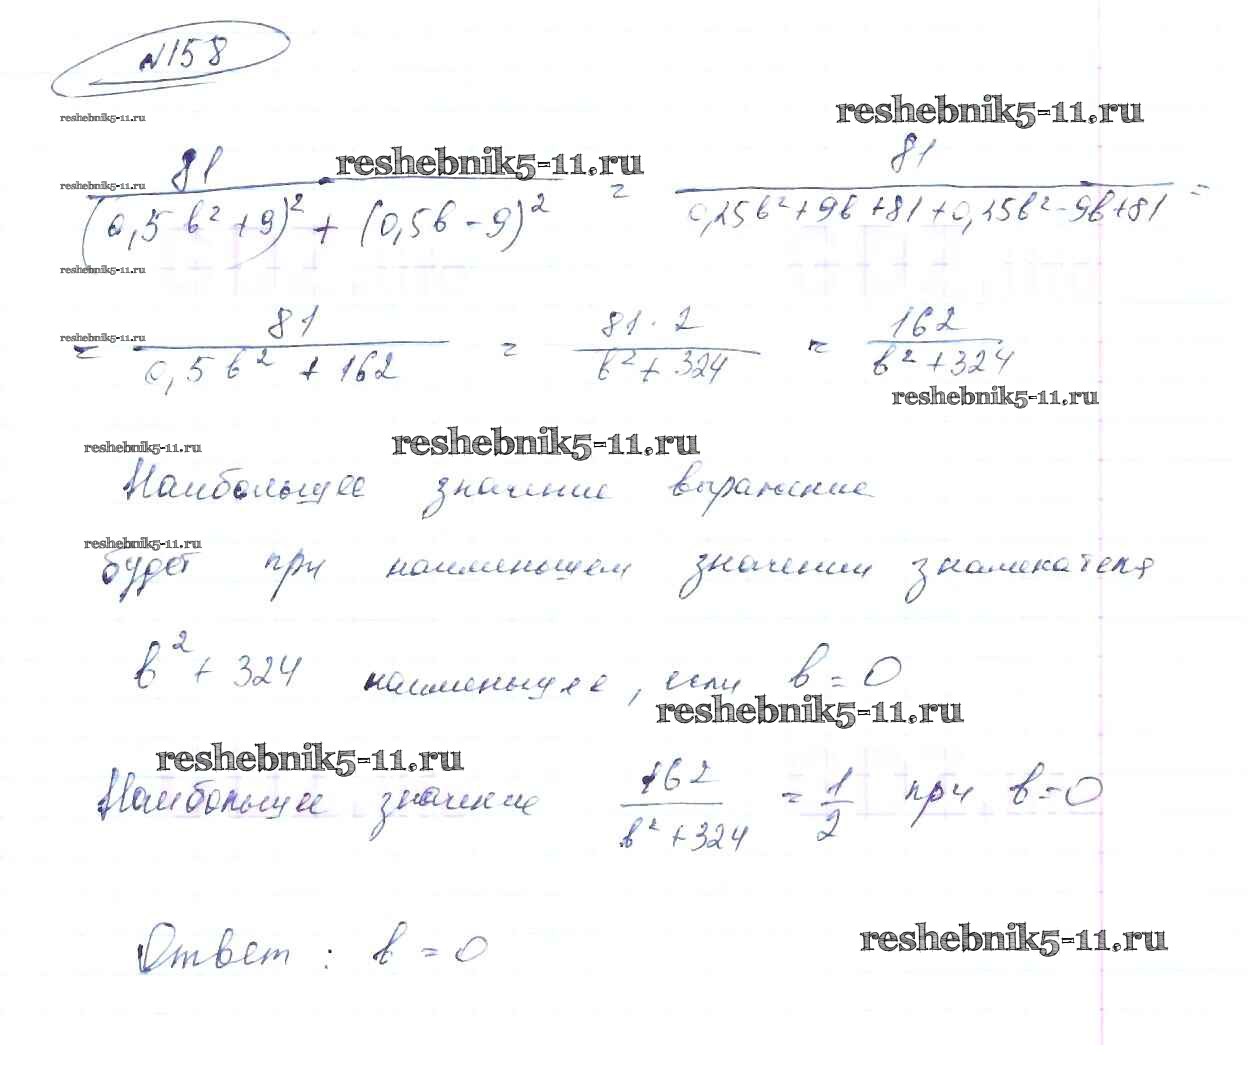 №158
reshebnik5-11.ru
reshebnik5-11.ru
81 / ((0,5b²+9)² + (0,5b-9)²) = 81 / (0,25b²+9b+81+0,25b²-9b+81) =
reshebnik5-11.ru
reshebnik5-11.ru
reshebnik5-11.ru
reshebnik5-11.ru
= 81 / (0,5b² + 162) = 81·2 / (b²+324) = 162 / (b²+324)
reshebnik5-11.ru
reshebnik5-11.ru
reshebnik5-11.ru
Наибольшее значение выражение
reshebnik5-11.ru
будет при наименьшем значении знаменателя
b² + 324 наименьшее, если b=0
reshebnik5-11.ru
reshebnik5-11.ru
Наибольшее значение 162 / (b²+324) = 1/2 при b=0
Ответ: b=0
reshebnik5-11.ru